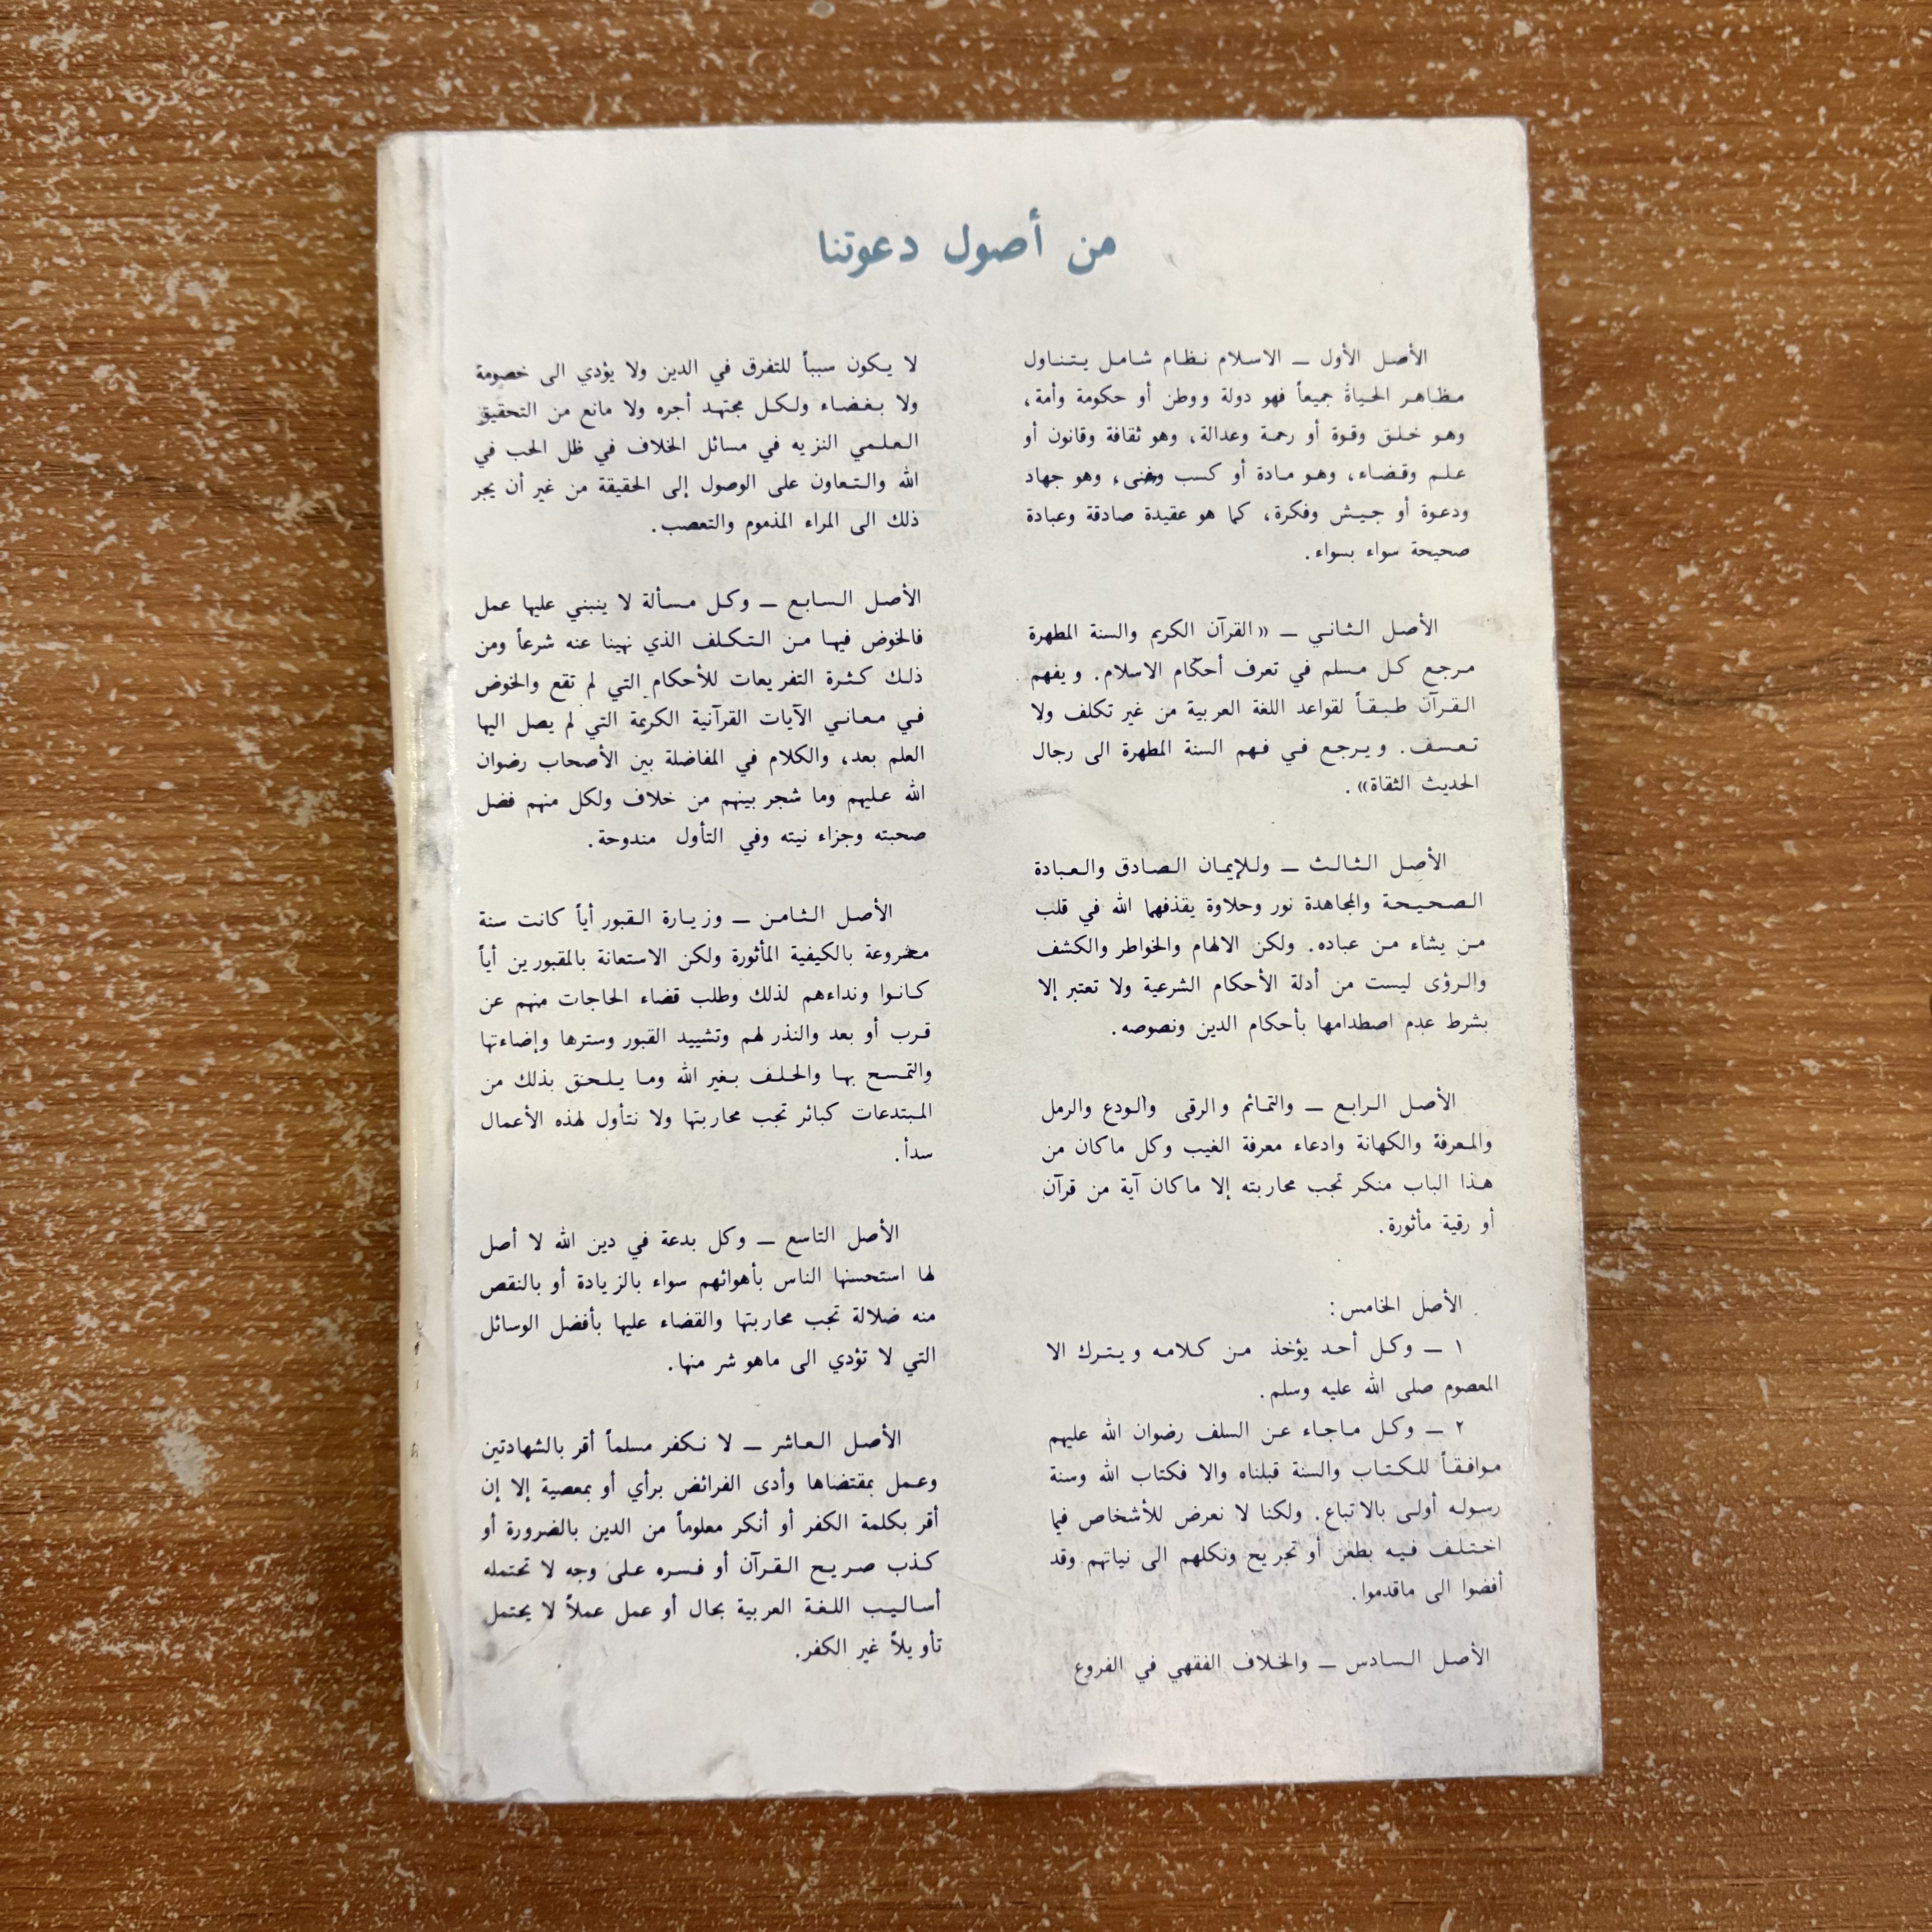 من أصول دعوتنا
الأصل الأول ــ الاسلام نظام شامل يتناول
مظاهر الحياة جميعاً فهو دولة ووطن أو حكومة وأمة،
وهو خلق وقوة أو رحمة وعدالة، وهو ثقافة وقانون أو
علم وقضاء، وهو مادة أو كسب وغنى، وهو جهاد
ودعوة أو جيش وفكرة، كما هو عقيدة صادقة وعبادة
صحيحة سواء بسواء.
الأصل الثاني ــ «القرآن الكريم والسنة المطهرة
مرجع كل مسلم في تعرف أحكام الاسلام. ويفهم
القرآن طبقاً لقواعد اللغة العربية من غير تكلف ولا
تعسف. ويرجع في فهم السنة المطهرة الى رجال
الحديث الثقاة».
الأصل الثالث ــ وللإيمان الصادق والعبادة
الصحيحة والمجاهدة نور وحلاوة يقذفهما الله في قلب
من يشاء من عباده. ولكن الالهام والخواطر والكشف
والرؤى ليست من أدلة الأحكام الشرعية ولا تعتبر إلا
بشرط عدم اصطدامها بأحكام الدين ونصوصه.
الأصل الرابع ــ والتمائم والرقى والودع والرمل
والمعرفة والكهانة وادعاء معرفة الغيب وكل ماكان من
هذا الباب منكر تجب محاربته إلا ماكان آية من قرآن
أو رقية مأثورة.
الأصل الخامس:
١ ــ وكل أحد يؤخذ من كلامه ويترك الا
المعصوم صلى الله عليه وسلم.
٢ ــ وكل ماجاء عن السلف رضوان الله عليهم
موافقاً للكتاب والسنة قبلناه والا فكتاب الله وسنة
رسوله أولى بالاتباع. ولكنا لا نعرض للأشخاص فيما
اختلف فيه بطعن أو تجريح ونكلهم الى نياتهم وقد
أفضوا الى ماقدموا.
الأصل السادس ــ والخلاف الفقهي في الفروع
لا يكون سبباً للتفرق في الدين ولا يؤدي الى خصومة
ولا بغضاء ولكل مجتهد أجره ولا مانع من التحقيق
العلمي النزيه في مسائل الخلاف في ظل الحب في
الله والتعاون على الوصول إلى الحقيقة من غير أن يجر
ذلك الى المراء المذموم والتعصب.
الأصل السابع ــ وكل مسألة لا ينبني عليها عمل
فالخوض فيها من التكلف الذي نهينا عنه شرعاً ومن
ذلك كثرة التفريعات للأحكام التي لم تقع والخوض
في معاني الآيات القرآنية الكريمة التي لم يصل اليها
العلم بعد، والكلام في المفاضلة بين الأصحاب رضوان
الله عليهم وما شجر بينهم من خلاف ولكل منهم فضل
صحبته وجزاء نيته وفي التأول مندوحة.
الأصل الثامن ــ وزيارة القبور أياً كانت سنة
مشروعة بالكيفية المأثورة ولكن الاستعانة بالمقبورين أياً
كانوا ونداءهم لذلك وطلب قضاء الحاجات منهم عن
قرب أو بعد والنذر لهم وتشييد القبور وسترها وإضاءتها
والتمسح بها والحلف بغير الله وما يلحق بذلك من
المبتدعات كبائر تجب محاربتها ولا نتأول لهذه الأعمال
سدأ.
الأصل التاسع ــ وكل بدعة في دين الله لا أصل
لها استحسنها الناس بأهوائهم سواء بالزيادة أو بالنقص
منه ضلالة تجب محاربتها والقضاء عليها بأفضل الوسائل
التي لا تؤدي الى ماهو شر منها.
الأصل العاشر ــ لا نكفر مسلماً أقر بالشهادتين
وعمل بمقتضاها وأدى الفرائض برأي أو بمعصية إلا إن
أقر بكلمة الكفر أو أنكر معلوماً من الدين بالضرورة أو
كذب صريح القرآن أو فسره على وجه لا تحتمله
أساليب اللغة العربية بحال أو عمل عملاً لا يحتمل
تأويلاً غير الكفر.